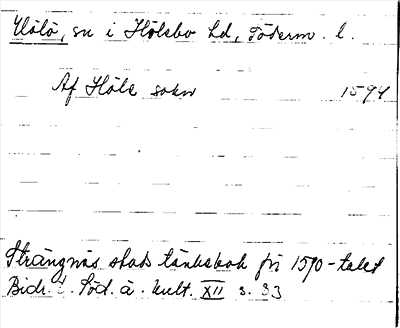 Hölö, sn i Hölebo hd, Söderm. l.
Af Höle sokn 1594
Strängnäs stads tänkebok fr 1590-talet
Bidr. t. Söd. ä. kult. XII s. 33